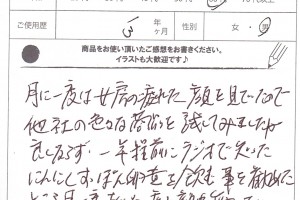 ご使用歴 3 年 ヶ月 性別 女・男
商品をお使い頂いたご感想をお書きください。
イラストも大歓迎です♪
月に一度は女房の疲れた顔を見ていたので
他社の色々な商品を試してみましたが
良くならず、一年程前にラジオで知った
にんにくすっぽん卵黄を飲む事を勧めた
ところ